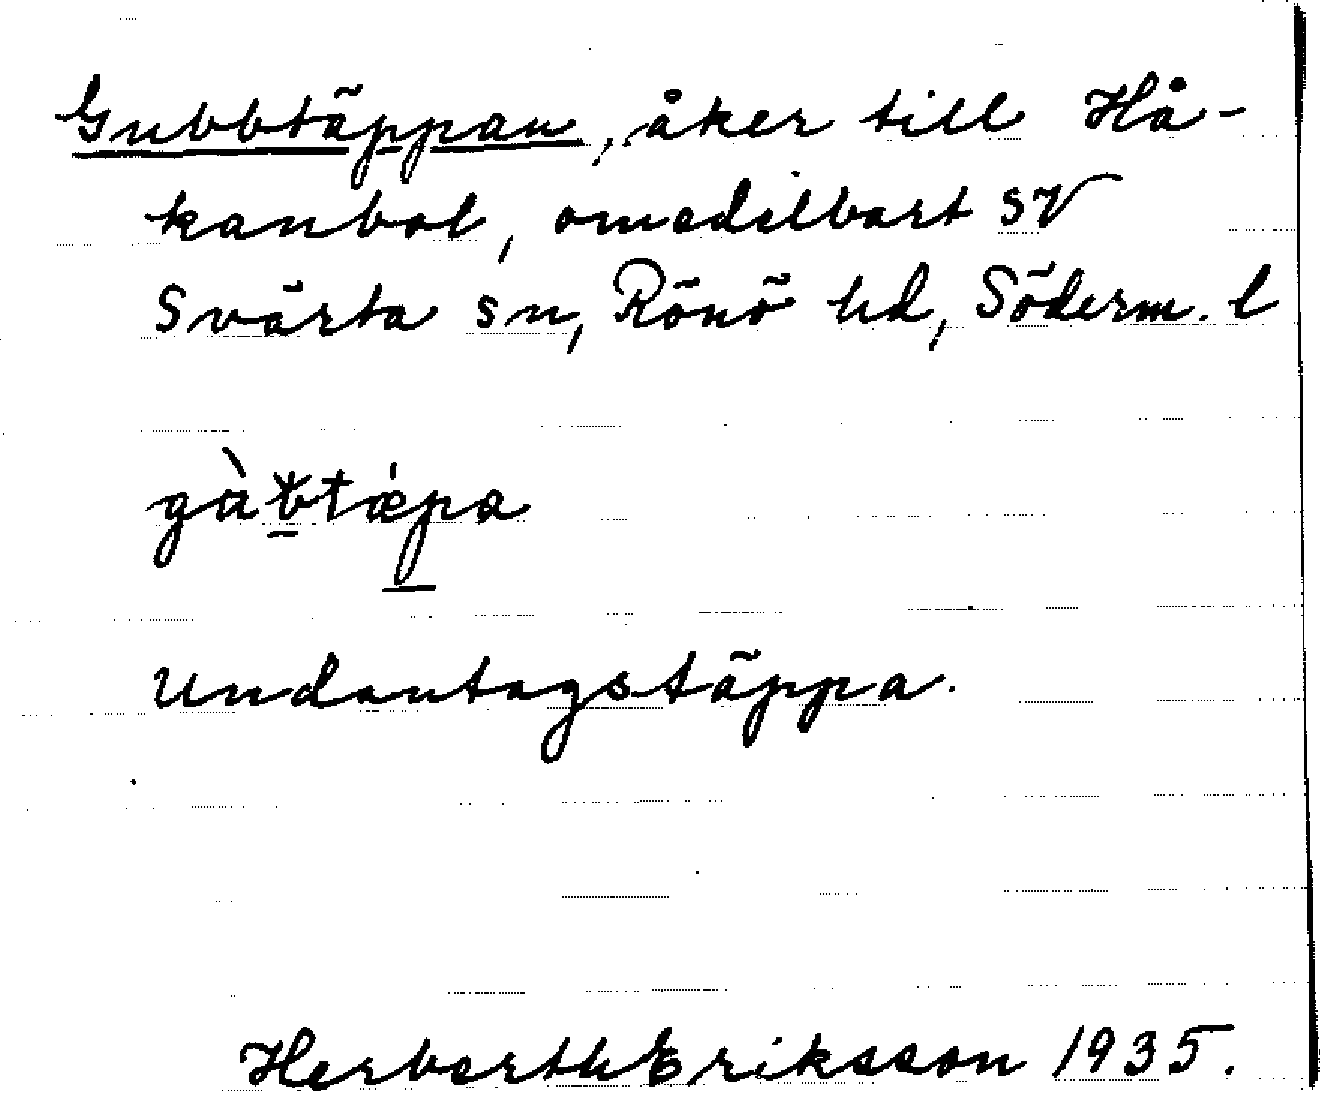 Gubbtäppan, åker till Hå-
kanbol, omedelbart SV
Svärta sn, Rönö hd, Söderm. l
gàbtǽpa
Undantagstäppa.
Herberth Eriksson 1935.